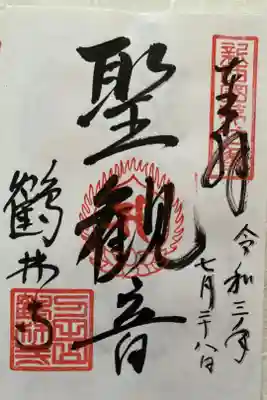 奉拝
令和三年
七月二十八日
聖観音
鶴林寺